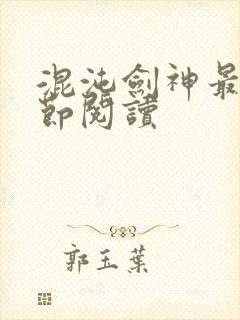 混沌劍神最
節閱讀
郭玉葉